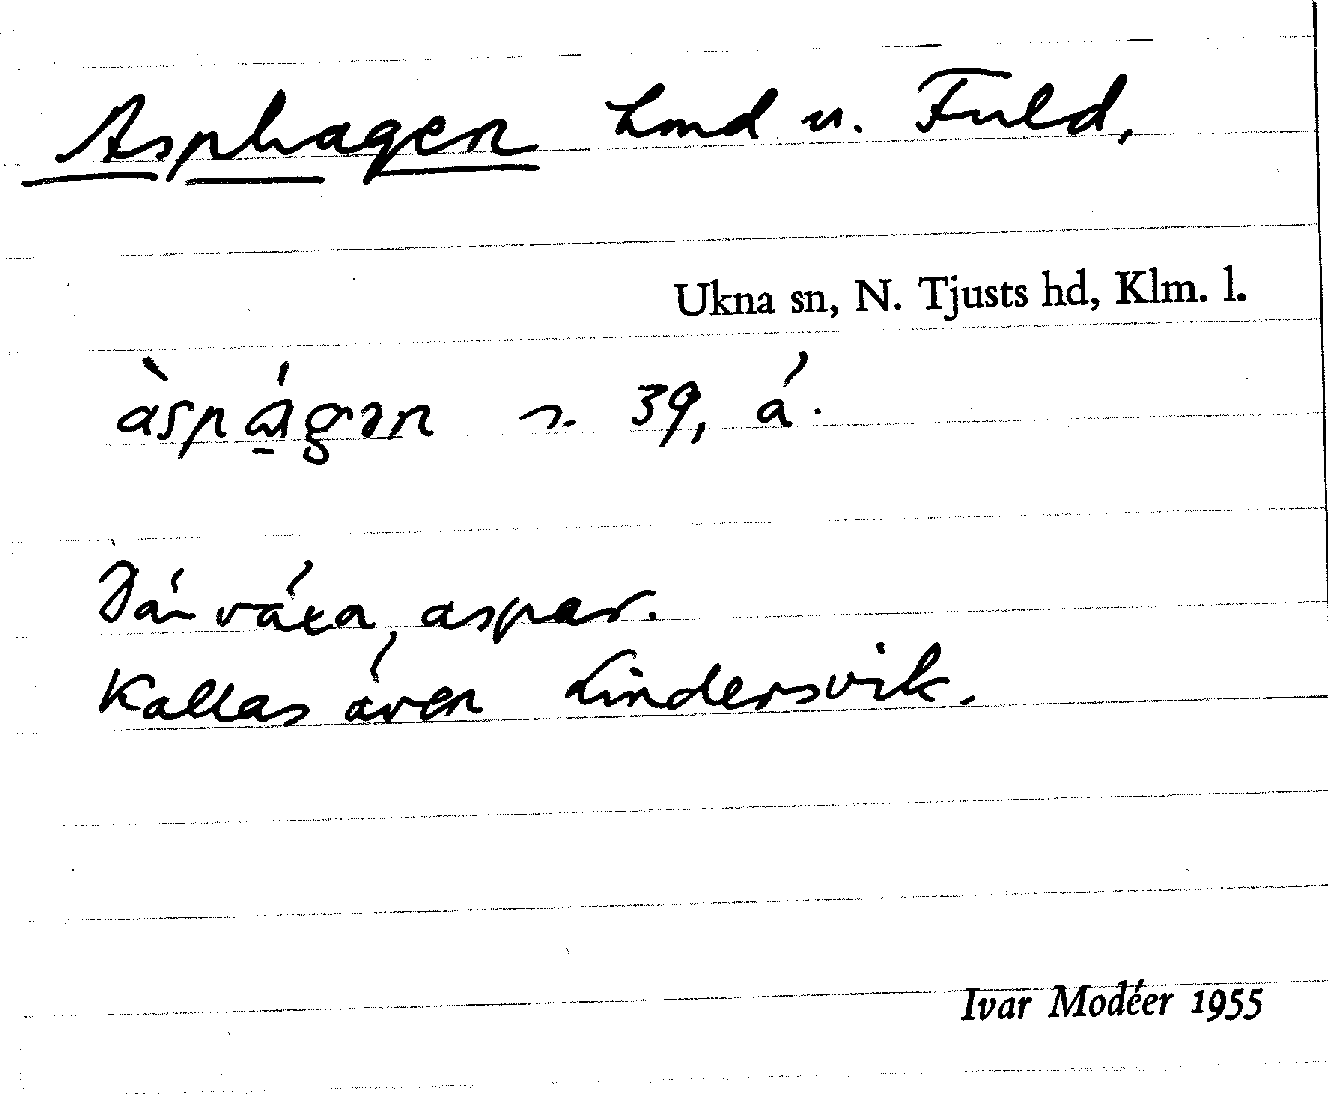 Asphagen Lmd u. Fuld,
Ukna sn, N. Tjusts hd, Klm. l.
39, á.
Där växa aspar.
Kallas även Lindersvik.
Ivar Modéer 1955